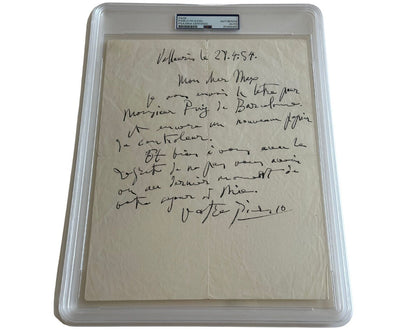 Vallauris le 27.4.54.
Mon cher Max
je vous envoie la lettre pour
Monsieur Puig de Barcelone
et encore un nouveau papier
de controleur.
Et bien à vous avec le
regrets de ne pas vous avoir
vu au dernier moment de
votre séjour à Nice.
votre Picasso